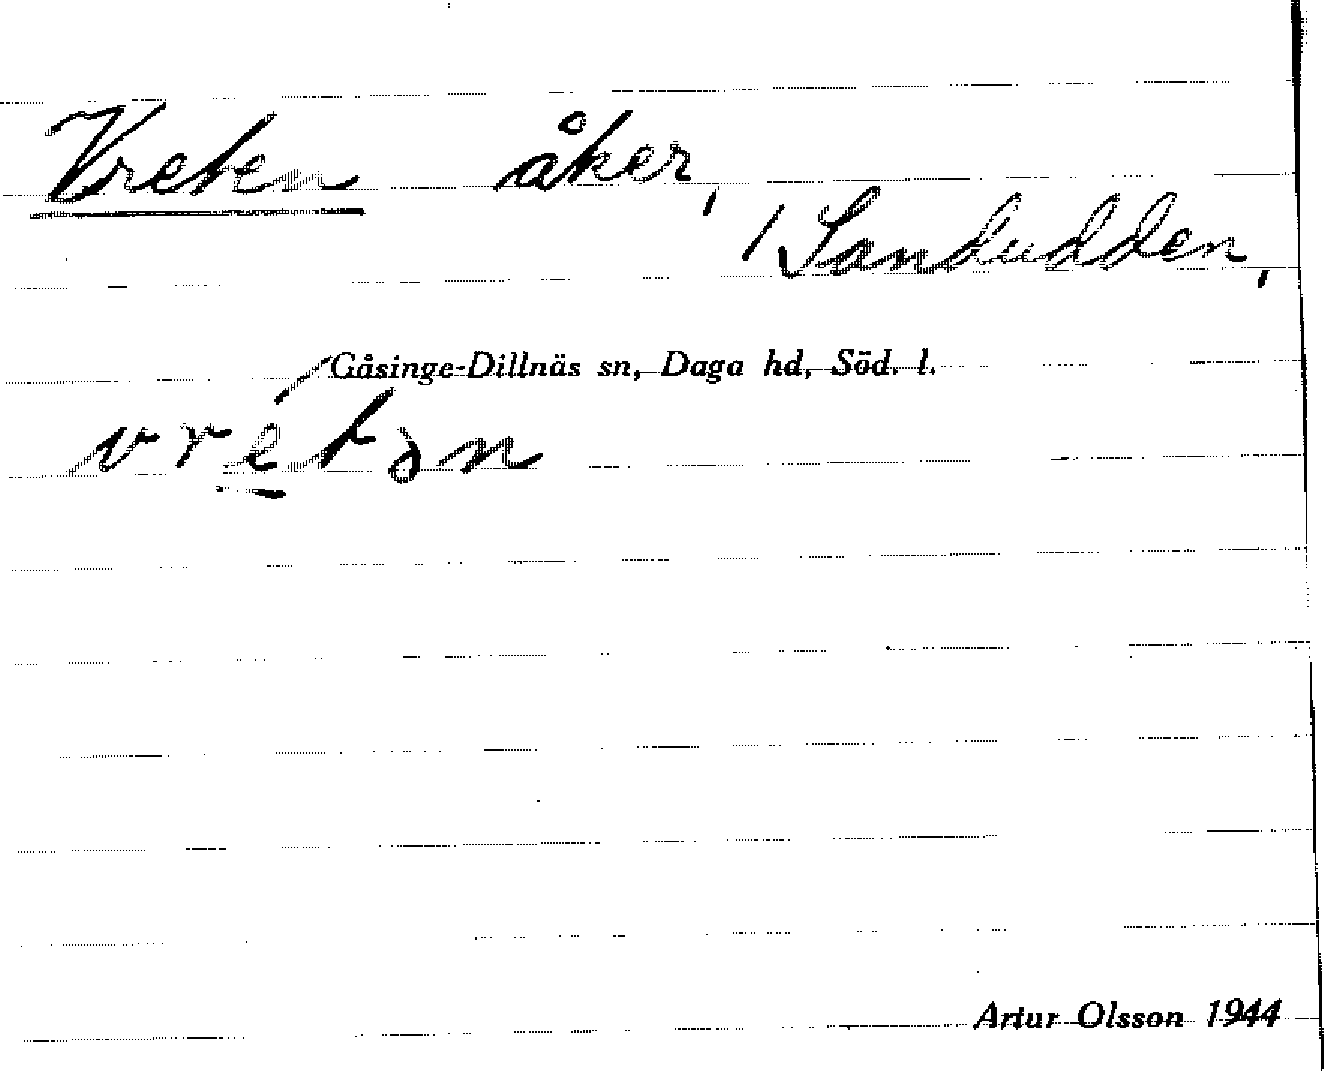 Vreten åker,
/Sandudden,
Gåsinge-Dillnäs sn, Daga hd, Söd. l.
vre̲´tən
Artur Olsson 1944